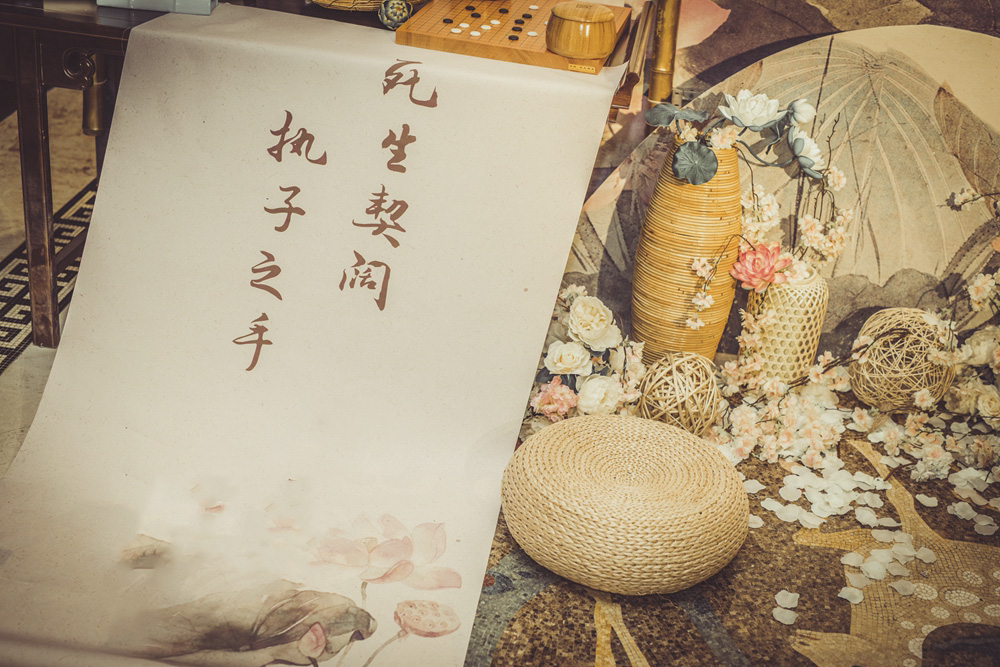 死生契阔
执子之手